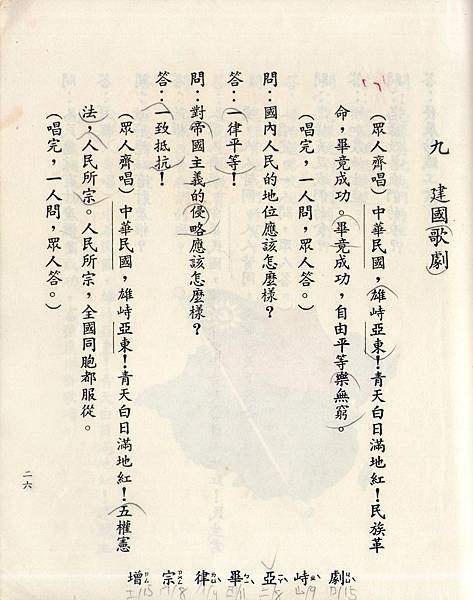 九　建國歌劇
（眾人齊唱）中華民國，雄峙亞東！青天白日滿地紅！民族革
命，畢竟成功。畢竟成功，自由平等樂無窮。
（唱完，一人問，眾人答。）
問：國內人民的地位應該怎麼樣？
答：一律平等！
問：對帝國主義的侵略應該怎麼樣？
答：一致抵抗！
（眾人齊唱）中華民國，雄峙亞東！青天白日滿地紅！五權憲
法，人民所宗。人民所宗，全國同胞都服從。
（唱完，一人問，眾人答。）
二六
劇
峙
亞
畢
律
宗
增